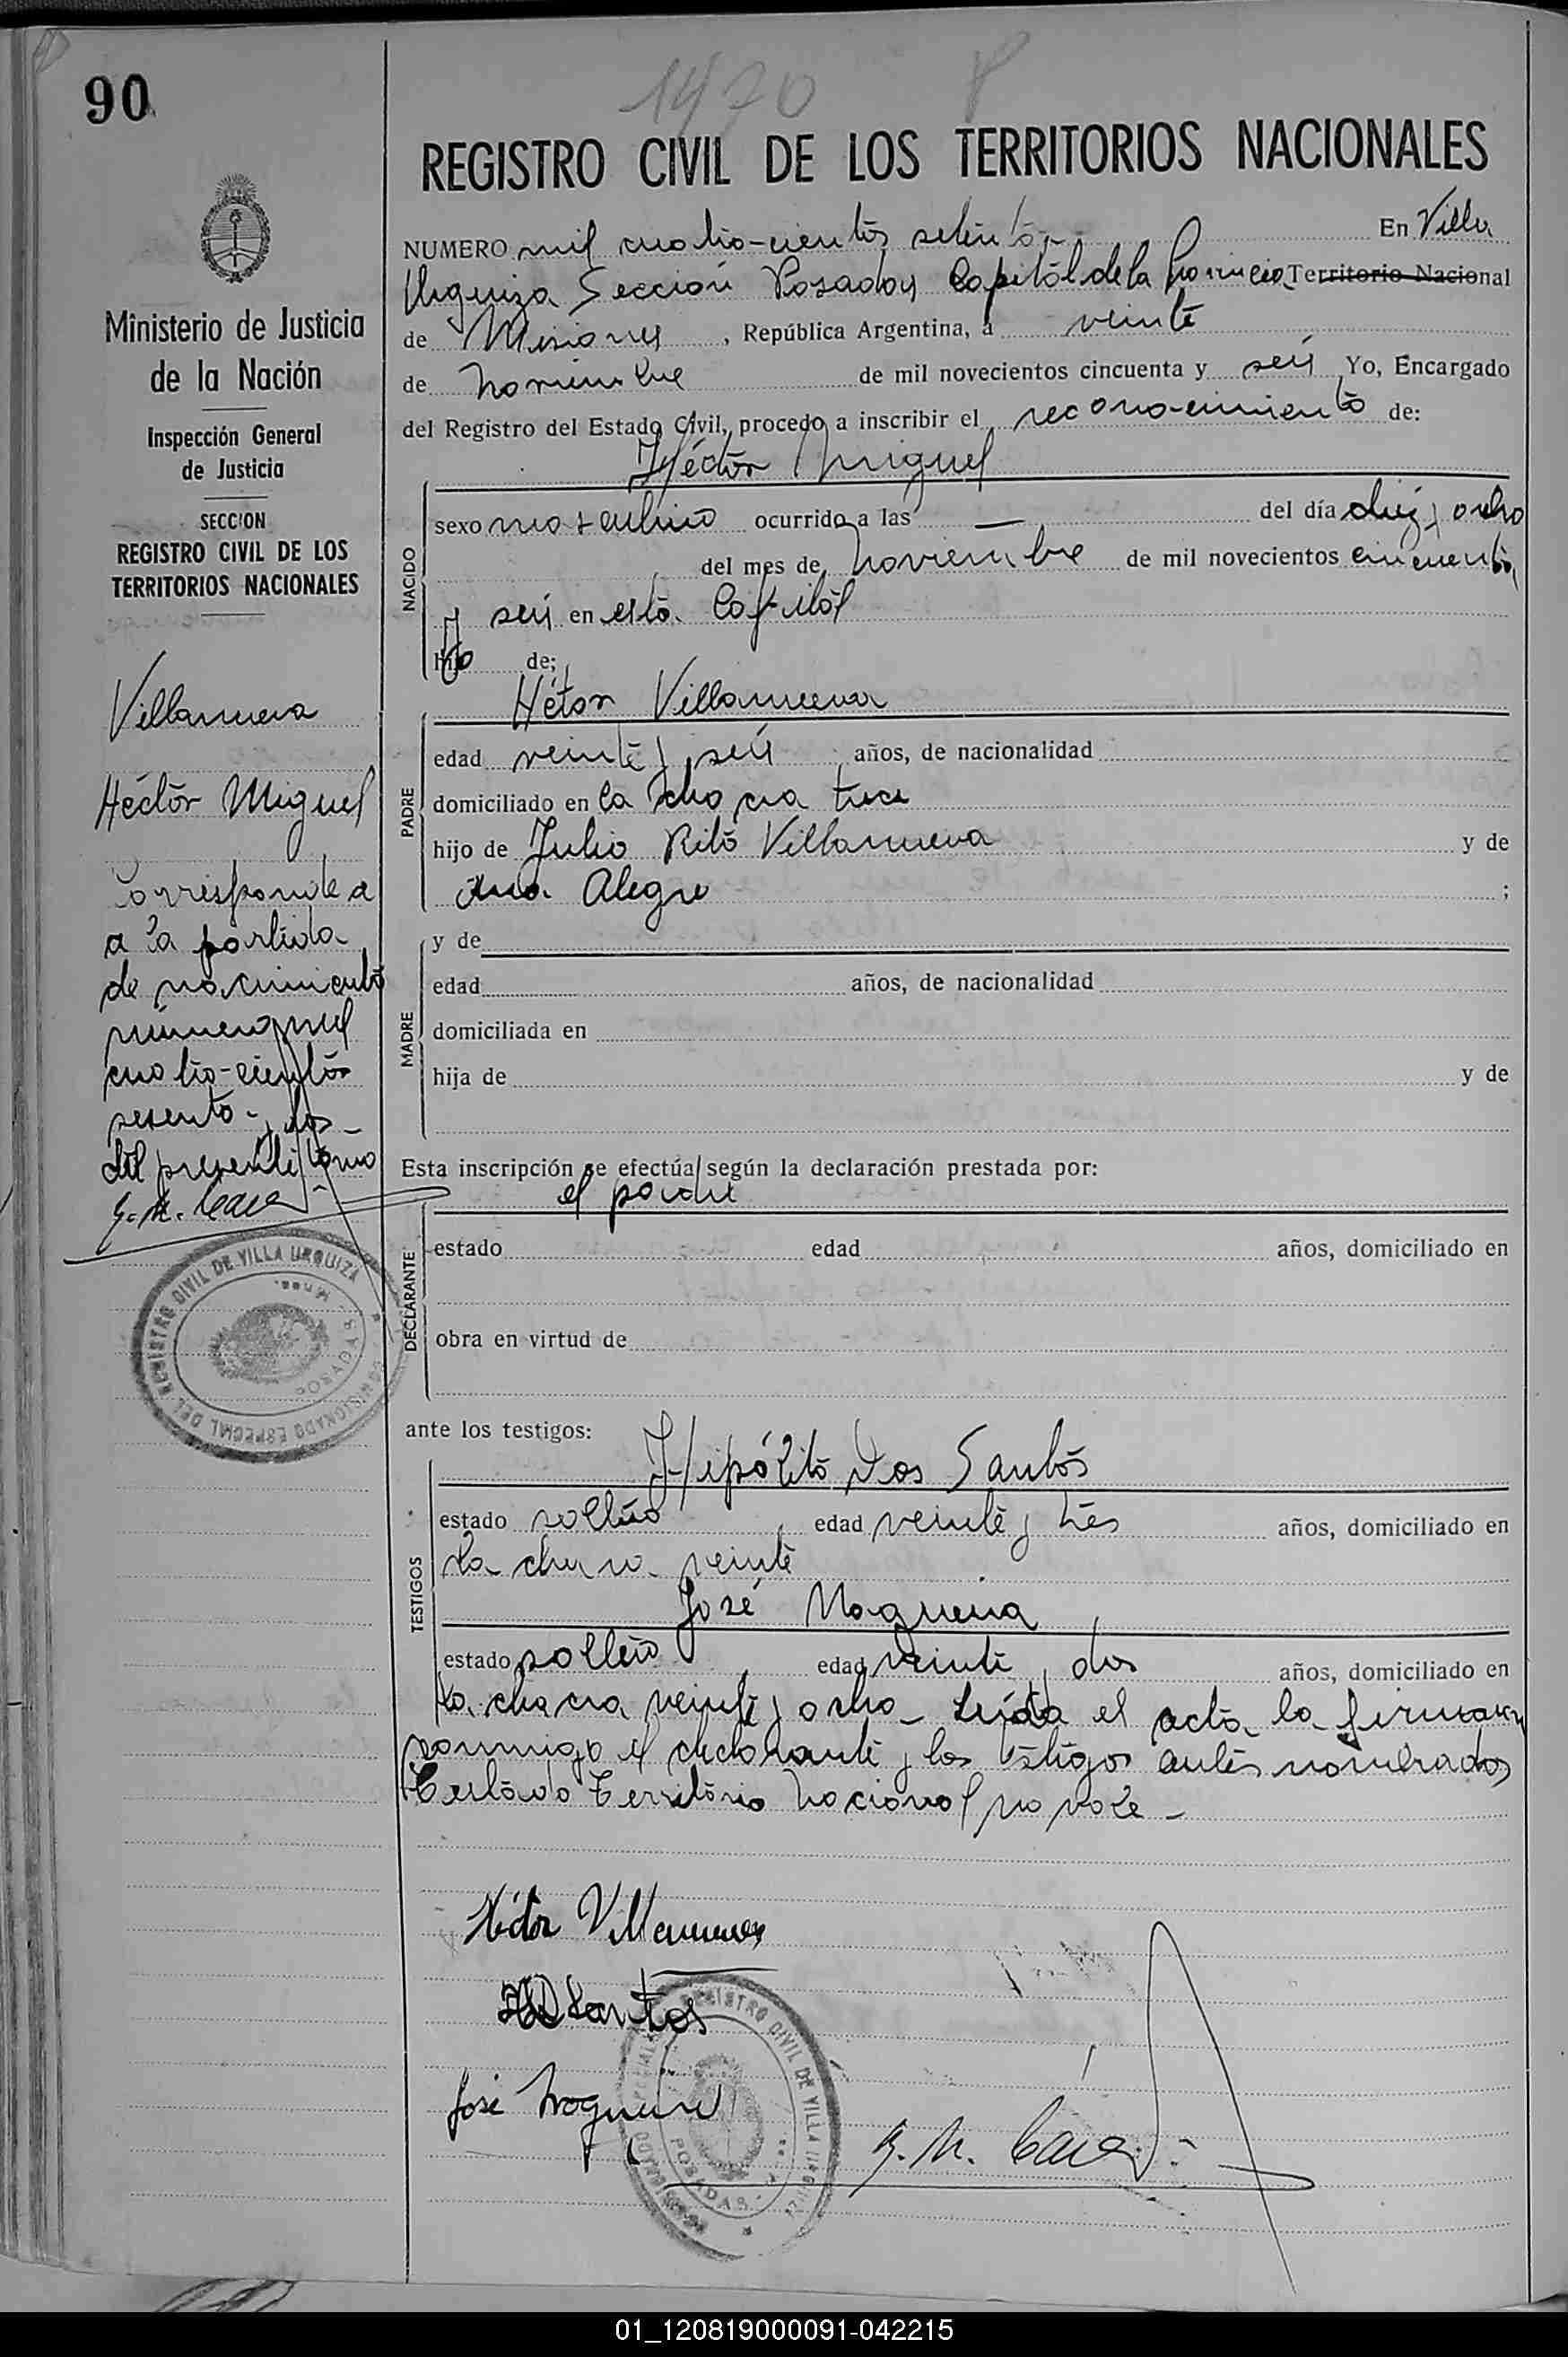 90
1470
REGISTRO CIVIL DE LOS TERRITORIOS NACIONALES
NUMERO mil cuatro-cientos setenta En Villa
Urquiza Sección Posadas Capital de la Provincia Territorio Nacional
de Misiones, República Argentina, a veinte
de noviembre de mil novecientos cincuenta y seis Yo, Encargado
del Registro del Estado Civil, procedo a inscribir el reconocimiento de:
Héctor Miguel
NACIDO
sexo masculino ocurrido a las — del día diez y ocho
del mes de noviembre de mil novecientos cincuenta
y seis en esta Capital
hijo de;
Héctor Villanueva
PADRE
edad veinte y seis años, de nacionalidad
domiciliado en la chacra trece
hijo de Julio Rito Villanueva y de
Ana Alegre ;
MADRE
y de
edad años, de nacionalidad
domiciliada en
hija de y de
Esta inscripción se efectúa según la declaración prestada por:
el padre
DECLARANTE
estado edad años, domiciliado en
obra en virtud de
ante los testigos:
Hipólito Dos Santos
TESTIGOS
estado soltero edad veinte y tres años, domiciliado en
la chacra veinte
José Nogueira
estado soltero edad veinte y dos años, domiciliado en
la chacra veinte y ocho - Leída el acta la firman
conmigo el declarante y los testigos antes nombrados
Testado Territorio Nacional no vale -
Héctor Villanueva
Santos
José Nogueira
REGISTRO CIVIL DE VILLA URQUIZA
POSADAS
Ministerio de Justicia
de la Nación
Inspección General
de Justicia
SECCION
REGISTRO CIVIL DE LOS
TERRITORIOS NACIONALES
Villanueva
Héctor Miguel
Corresponde a
a la partida
de nacimiento
número mil
cuatro-cientos
sesenta y dos
del presente tomo
COMISIONADO ESPECIAL DEL REGISTRO CIVIL DE VILLA URQUIZA
POSADAS - Mnes.
01_120819000091-042215